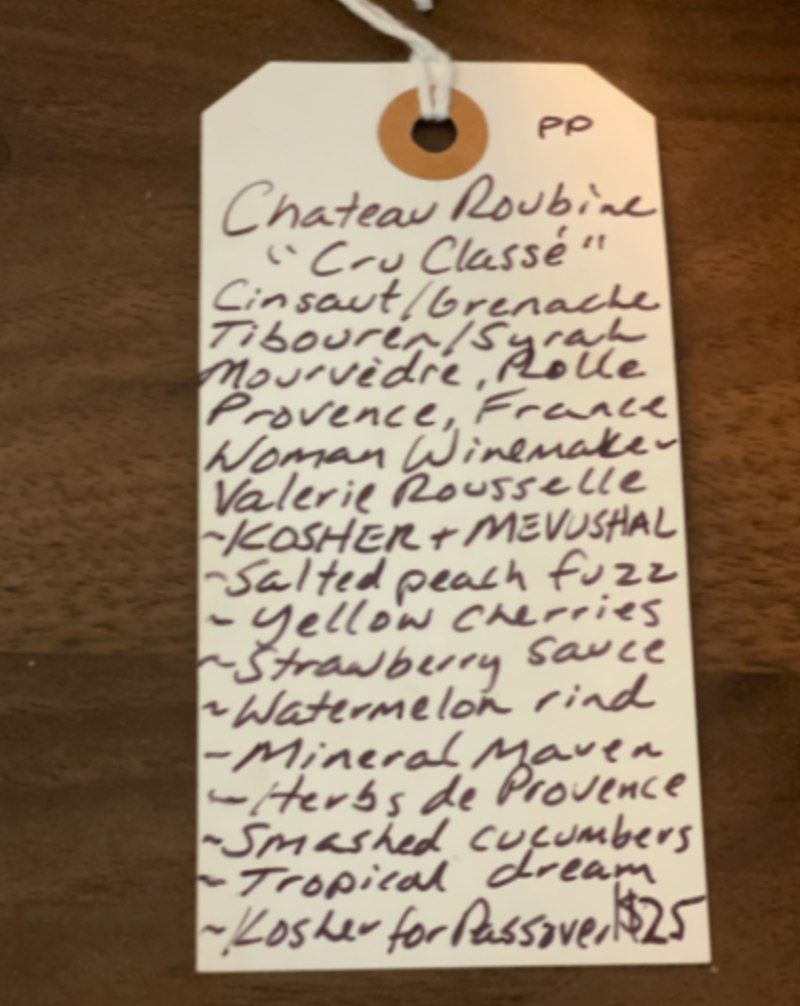 PP
Chateau Roubine
"Cru Classé"
Cinsaut/Grenache
Tibouren/Syrah
Mourvèdre, Rolle
Provence, France
Woman Winemaker
Valerie Rousselle
~KOSHER + MEVUSHAL
~Salted peach fuzz
~Yellow cherries
~Strawberry sauce
~Watermelon rind
~Mineral Maven
~Herbs de Provence
~Smashed cucumbers
~Tropical dream
~Kosher for Passover $25